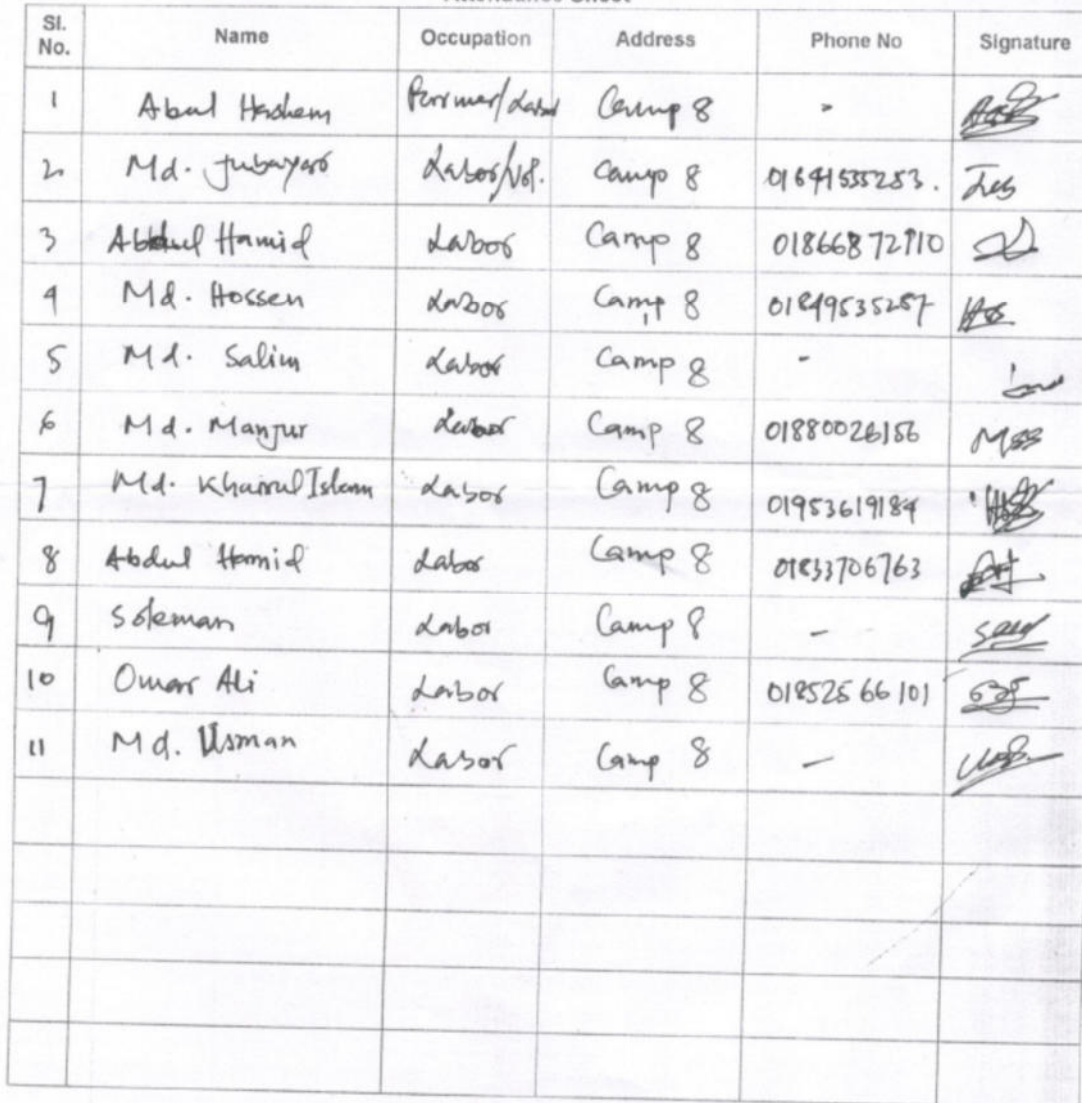 Attendance Sheet
Sl. No. Name Occupation Address Phone No Signature
1 Abul Hashem Farmer/Labor Camp 8 -
2 Md. Jubayar Labor/Vol. Camp 8 01641535253.
3 Abdul Hamid Labor Camp 8 01866872910
4 Md. Hossen Labor Camp 8 01849535257
5 Md. Salim Labor Camp 8 -
6 Md. Manjur Labor Camp 8 01880026156
7 Md. Khairul Islam Labor Camp 8 01953619184
8 Abdul Hamid Labor Camp 8 01833706763
9 Soleman Labor Camp 8 -
10 Omar Ali Labor Camp 8 01852566101
11 Md. Usman Labor Camp 8 -